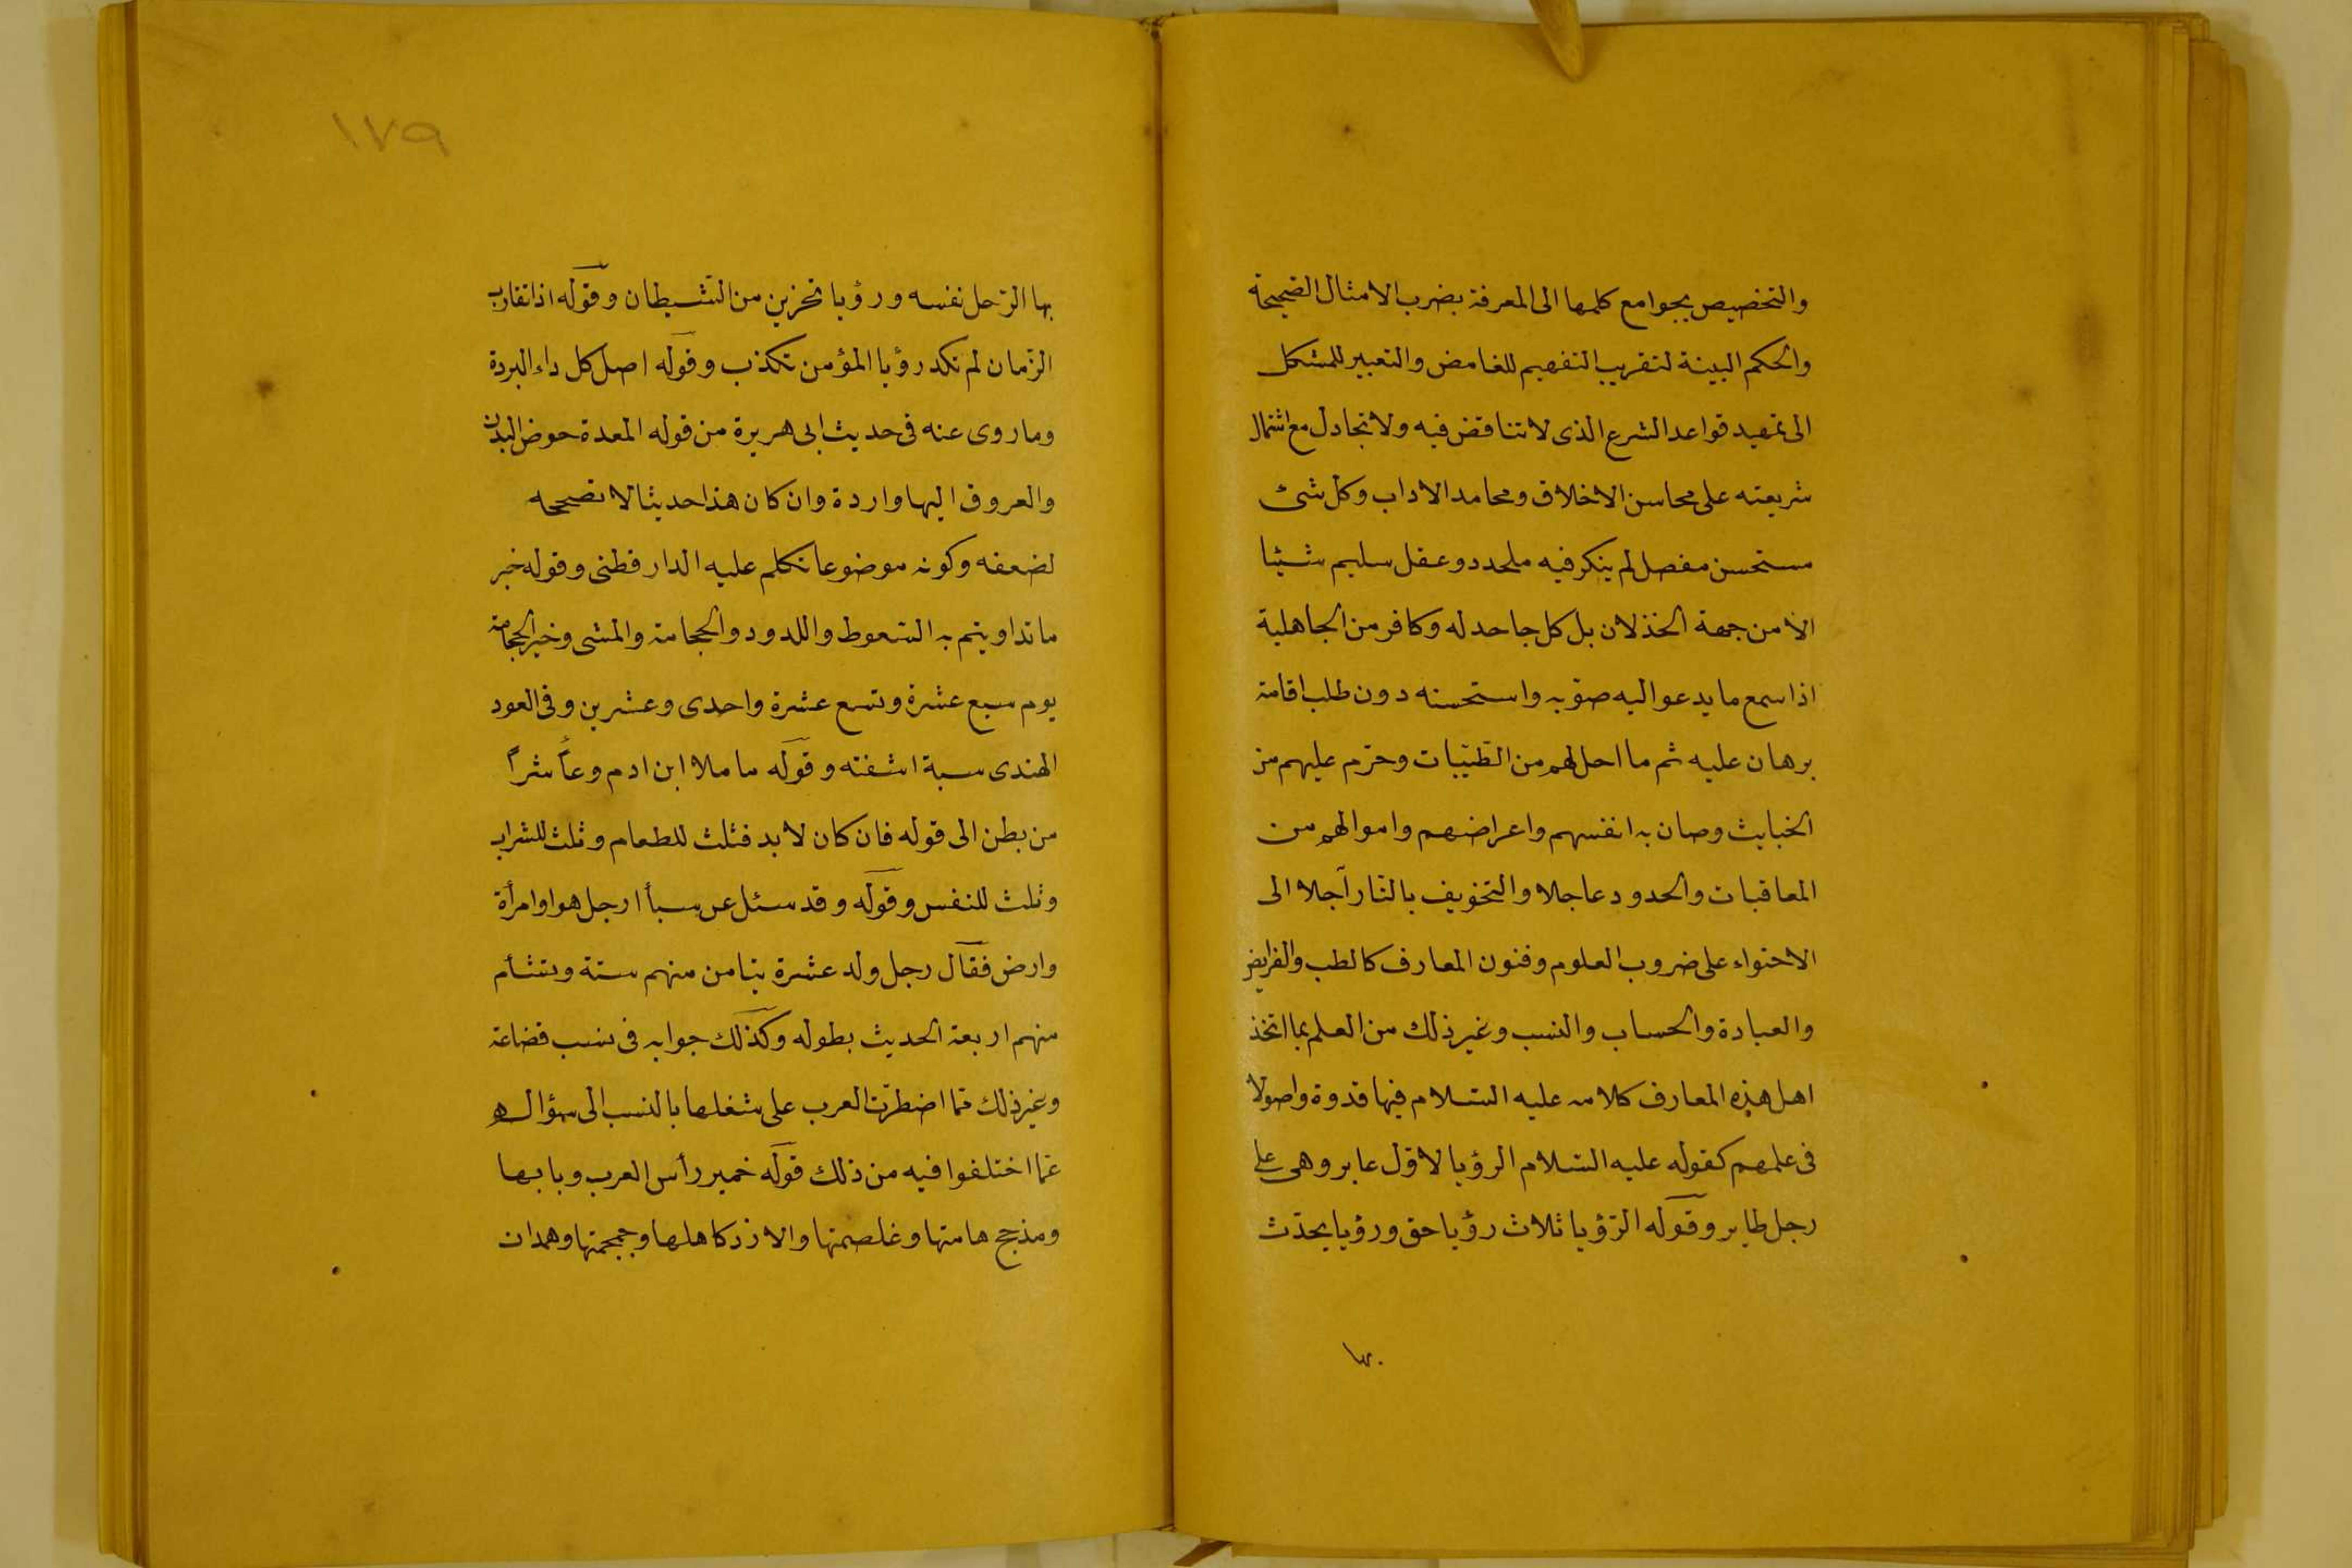 والتخصيص بجوامع كلمها الى المعرفة بضرب الامثال الصحيحة
والحكم البينة لتقريب التفهيم للغامض والتعبير للمشكل
الى تمهيد قواعد الشرع الذى لا تناقض فيه ولا تجادل مع اشتمال
شريعته على محاسن الاخلاق ومحامد الاداب وكل شئ
مستحسن مفصل لم ينكر فيه ملحد ذو عقل سليم شيئا
الا من جهة الخذلان بل كل جاحد له وكافر من الجاهلية
اذا سمع ما يدعو اليه صوّبه واستحسنه دون طلب اقامة
برهان عليه ثم ما احل لهم من الطيّبات وحرّم عليهم من
الخبايث وصان به انفسهم واعراضهم واموالهم من
المعاقبات والحدود عاجلا والتخويف بالنّار آجلا الى
الاحتواء على ضروب العلوم وفنون المعارف كالطب والفرايض
والعبادة والحساب والنسب وغير ذلك من العلم بما اتخذ
اهل هذه المعارف كلامه عليه السّلام فيها قدوة واصولا
فى علمهم كقوله عليه السّلام الرؤيا لاوّل عابر وهى على
رجل طاير وقوله الرّؤيا ثلاث رؤيا حق ورؤيا يحدّث
بها
١٧٩
بها الرّجل نفسه ورؤيا تحزين من الشّيطان وقوله اذا تقارب
الزّمان لم تكد رؤيا المؤمن تكذب وقوله اصل كل داء البردة
وما روى عنه فى حديث ابى هريرة من قوله المعدة حوض البدن
والعروق اليها واردة وان كان هذا حديثا لا نصححه
لضعفه وكونه موضوعا تكلم عليه الدارقطنى وقوله خير
ما تداويتم به السّعوط واللدود والحجامة والمشى وخير الحجامة
يوم سبع عشرة وتسع عشرة واحدى وعشرين وفى العود
الهندى سبة اشفته وقوله ما ملا ابن ادم وعاً شراً
من بطن الى قوله فان كان لا بد فثلث للطعام وثلث للشراب
وثلث للنفس وقوله وقد سئل عن سبأ ارجل هو او امرأة
وارض فقال رجل ولد عشرة تيامن منهم ستة وتشأم
منهم اربعة الحديث بطوله وكذلك جوابه فى نسب قضاعة
وغير ذلك ممّا اضطرّت العرب على شغلها بالنسب الى سؤاله
عمّا اختلفوا فيه من ذلك قوله خمير رأس العرب وبابها
ومذحج هامتها وغلصمتها والازد كاهلها وجمجمتها وهمدان